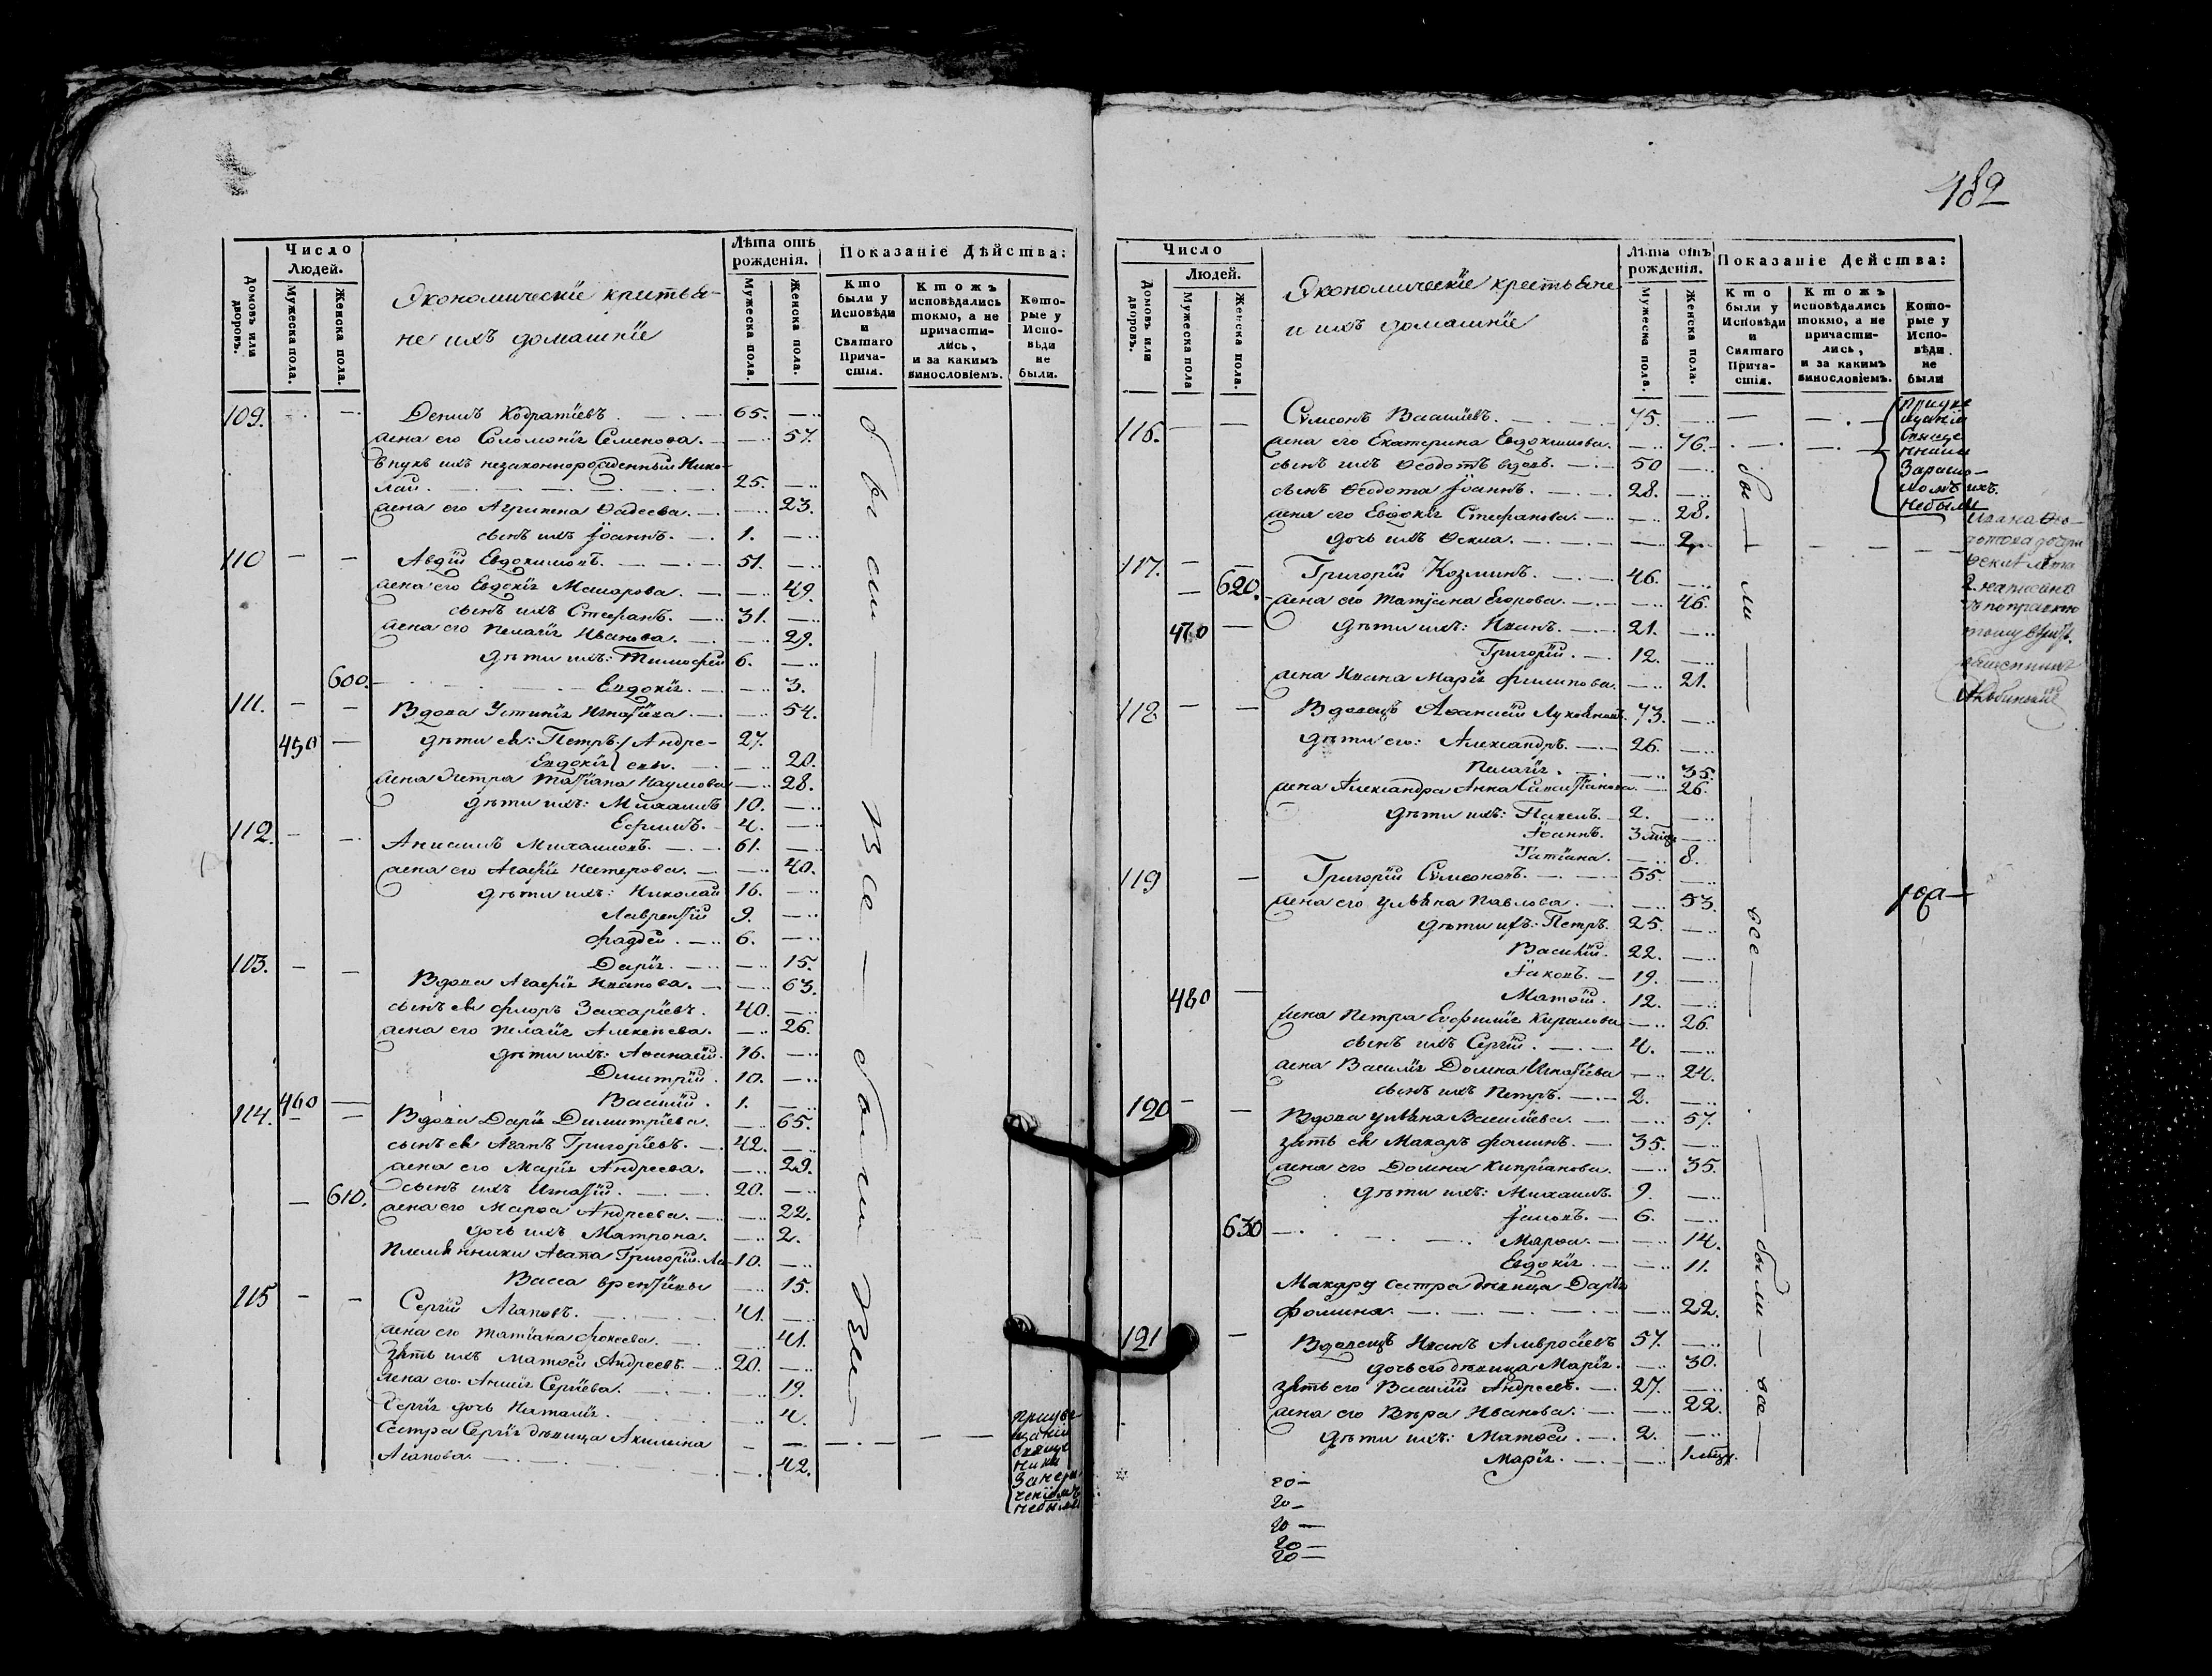 482
Число
Людей.
Домовъ или дворовъ.
Мужеска пола.
Женска пола.
Экономическіе крестья-
не ихъ домашніе
Лѣта отъ рожденія.
Мужеска пола.
Женска пола.
Показаніе Дѣйства:
Кто были у Исповѣди и Святаго Прича-стія.
Ктожъ исповѣдались токмо, а не причасти-лись, и за какимъ винословіемъ.
Кото-рые у Испо-вѣди не были.
109. Денисъ Кодратіевъ. 65.
жена его Соломонія Семенова. 57.
внукъ ихъ незаконнорожденный Нико-
лай. 25.
жена его Агрипена Фадеева. 23.
сынъ ихъ Іоаннъ. 1.
110 Авдій Евдокимовъ. 51.
жена его Евдокія Макарова. 49.
сынъ ихъ Стефанъ. 31.
жена его Пелагія Иванова. 29.
дѣти ихъ: Тимофей 6.
600. Евдокія. 3.
111. Вдова Устинія Игнатіева. 54.
450 дѣти ея: Петръ / Андре- 27.
Евдокія / евы. 20.
жена Петра Татіана Наумова 28.
дѣти ихъ: Михаилъ 10.
Ефимъ. 4.
112. Анисимъ Михаиловъ. 61.
жена его Агафія Нестерова. 40.
дѣти ихъ: Николай 16.
Лаврентій 9.
Фадей. 6.
Дарія. 15.
103. Вдова Агафія Иванова. 63.
сынъ ея Флоръ Захаріевъ. 40.
жена его Пелагія Алексѣева. 26.
дѣти ихъ: Афанасій. 16.
Дмитрій. 10.
460 Василій. 1.
114. Вдова Дарія Димитріева. 65.
сынъ ея Агапъ Григоріевъ. 42.
жена его Марія Андреева. 29.
сынъ ихъ Игнатій. 20.
610. жена его Марѳа Андреева. 22.
дочь ихъ Матрона. 2.
Племянники Агапа Григорій Ла- 10.
Васса врентіевы 15.
115 Сергій Агаповъ. 41.
жена его Татіана Фокеева. 41.
зять ихъ Матѳей Андреевъ. 20.
жена его Анисія Сергіева. 19.
Сергія дочь Наталія. 4.
Сестра Сергія дѣвица Акилина
Агапова. 42.
Число
Людей.
Домовъ или дворовъ.
Мужеска пола
Женска пола.
Экономическіе крестьяне
и ихъ домашніе
Лѣта отъ рожденія.
Мужеска пола.
Женска пола.
Показаніе Действа:
Кто были у Исповѣди и Святаго Прича-стія.
Ктожъ исповѣдались токмо, а не причасти-лись, и за какимъ винословіемъ.
Кото-рые у Испо-вѣди не были
116. Сѵмеонъ Василіевъ. 75.
жена его Екатерина Евдокимова. 76.
сынъ ихъ Ѳеодотъ вдовъ. 50
сынъ Ѳеодота Іоаннъ. 28.
жена его Евдокія Стефанова. 28.
дочь ихъ Ѳекла. 2.
117. Григорій Козминъ. 46.
620. жена его Татіана Егорова. 46.
470 дѣти ихъ: Иванъ. 21.
Григорій. 12.
жена Ивана Марія Филипова. 21.
118 Вдовецъ Афанасій Лукіяновъ. 73.
дѣти его: Александръ. 26.
Пелагія. 35.
жена Александра Анна 26.
дѣти ихъ: Павелъ. 2.
Іоаннъ. 3 мѣсц.
Татіана. 8.
119 Григорій Сѵмеоновъ. 55.
жена его Ульяна Павлова. 53.
дѣти ихъ: Петръ. 25.
Василій. 22.
Іаковъ. 19.
480 Матѳій. 12.
жена Петра Евфимія Кирилова 26.
сынъ ихъ Сергій. 4.
жена Василія Домна Игнатіева 24.
сынъ ихъ Петръ. 2.
120 Вдова Ульяна Василіева. 57.
зять ея Макаръ Фоминъ. 35.
жена его Домна Кипріанова. 35.
дѣти ихъ: Михаилъ. 9.
Іаковъ. 6.
630 Марѳа. 14.
Евдокія. 11.
Макару сестра дѣвица Дарія
Фомина. 22.
121 Вдовецъ Иванъ Амвросіевъ 57.
дочь его дѣвица Марія. 30.
зять его Василій Андреевъ. 27.
жена его Вѣра Иванова. 22.
дѣти ихъ: Матѳей. 2.
Марія. 1 мѣсц.
20—
20—
20—
20—
20—